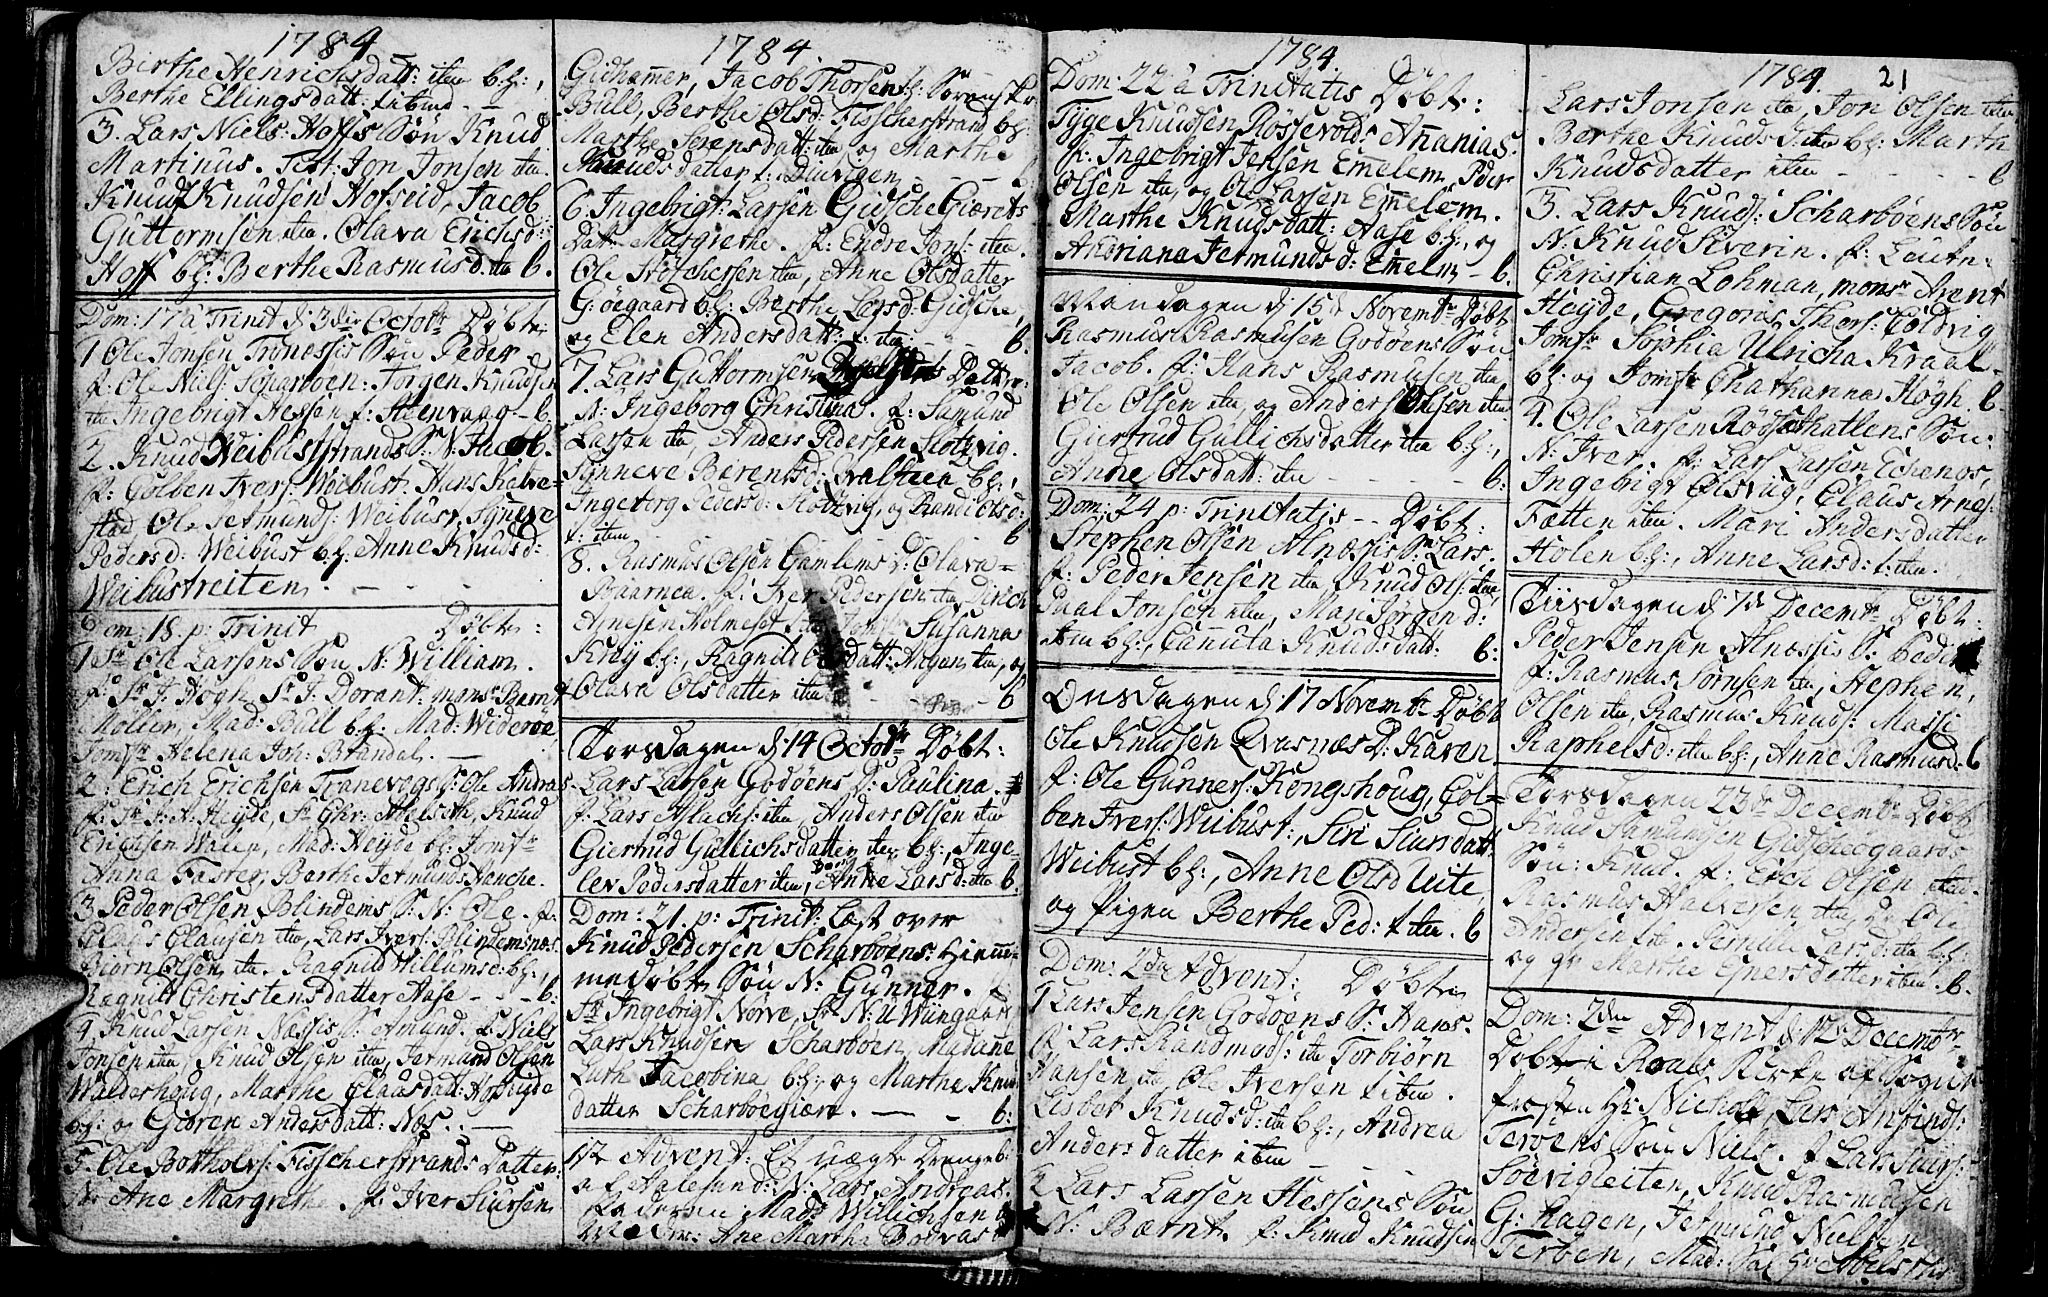 1784
Birthe Henrichsdatt: item b:f:,
Berthe Ellingsdatt: ibid - -
3. Lars Niels: Hoffs Søn Knud
Martinus. Test: Jon Jonsen item
Knud Knudsen Hofseid, Jacob
Guttormsen item. Olava Erichsd:
Hoff b:f: Berthe Rasmusd: item b.
Dom: 17 à Trinit d: 3die Octobr Døbt:
1 Ole Jonsen Søn Peder
f: Ole Niels: Scharboen: Jørgen Knudsen
item Ingebrigt Hessen f: Steenvaag - b.
2. Knud Weibustrands S: N: Jacob.
f: Colben Ivers: Weibust: Hans Kalve=
stad Ole Jetmunds: Weibust. Syneve
Pedersd: Weibust b:f: Anne Knudsd:
Weibustreiten. - - -
Dom: 18. p: Trinit Døbt:
1 Sr Ole Larsens Søn N: William.
f: Sr J. Høgh, Sr J. Dorant: monsr Bernt
Moller, Mad: Bull b:f: Mad: Wideroe,
Jomfr Helena Joh: Brandal. -
2. Erich Erichsen Tranevogs S: Ole Andreas
f: Sr J: A: Heyde, Sr Chr: Abelseth, Knud
Erichsen Walen, Mad: Heyde b:f: Jomfr
Anna Faster, Berthe Jetmunds Hanche.
3 Peder Olsen Blindems S: N: Ole. f:
Claus Clausen item, Lars Ivers: Blindemsnæs
Biørn Olsen item. Ragnild Willumsd: b:f:,
Ragnill Christensdatter Aase - - - b:
4 Knud Larsen Næssis S: Amund. f: Niels
Jonsen item, Knud Olsen item, Jetmund Olsen
Walderhoug, Marthe Clausdatt: Hofseide
b:f: og Gioren Andersdatt: Næs. -
5. Ole Botholvs: Fisscherstrands Datter:
N: Ane Margrethe. f: Iver Siursen
1784.
Gidhamer, Jacob Thorsen
Bull, Berthe Olsd: Fisscherstrand b:f:
Marthe Sørensdatt: item og Marthe
Knudsdatter f: Duevigen - - - b
6. Ingebrigt: Larsen Gidsche Giærets
Dat: Margrethe. f: Endre Jons: item.
Ole item, Anne Olsdatter
G: øegaard b:f: Berthe Larsd: Gidsche,
og Elen Andersdatt: f: item: - - b.
7. Lars Guttormsen Datter:
N: Ingeborg Christina. f: Samund
Larsen item, Anders Pedersen Slotzvig.
Synneve Berentsd: b:f:,
Ingeborg Pedersd: Slotzvig, og Randi Olsd:
f: item - - - - b
8. Rasmus Olsen Gamlems D: Olava=
Bjaarnea. f: Iver Pedersen item Dirich
Arnesen Holmeset Susanna
Krey b:f:, Ragnild Olsdatt: Aagen item, og
Olava Olsdatter item - - - b
Torsdagen d: 14 Octobr Døbt:
Lars Larsen Godøens D: Paulina.
f: Lars Alachs: item, Anders Olsen item
Giertrud Gullichsdatter item b:f:, Inge=
lev Pedersdatter item, Anne Larsd: item b
Dom: 21. p: Trinit: Læst over
Knud Pedersen Scharboens: Hieme=
medøbte Søn N: Gunner.
Sr Ingebrigt Nørve, Sr N: U Wungaard
Lars Knudsen Scharboen, Madame
Luth Jacobina b:f: og Marthe Knud
datter Scharbøegiæn. - - b:
1te Advent: Et uægte Drengeb:
af Aalesund: N: Lars Andreas.
Pedersen Mad: Willichsen
Ane Marthe
1784.
Dom: 22 à Trinitatis Døbt:
Tyge Knudsen Rossevold: Ananias.
f: Ingebrigt Jensen Emelem Peder
Olsen item, og Ole Larsen Emelem.
Marthe Knudsdatt: Aase b:f:, og
Andriana Jetmundsd: Emelem - b.
Mandagen d: 15d Novembr Døbt
Rasmus Rasmusen Godøens Søn
Jacob. f: Hans Rasmusen item
Ole Olsen item og Anders Olsen item
Giertrud Gullichsdatter item b:f:,
Anne Olsdatt: item - - - - b:
Dom: 24 p: Trinitatis - - Døbt:
Stephen Olsen Alnæssis S: Lars.
f: Peder Jensen item Knud Ols: item,
Paal Jonsen item, Mari Jørgend:
item b:f:, Canuta Knudsdatt: b:
Onsdagen d: 17 Novembr Døbt
Ole Knudsen Qvasnæs D: Karen
f: Ole Gunners: Kongshoug, Col=
ben Ivers: Weibust:, Siri Siursdatt:
Weibust b:f:, Anne Olsd Leite,
og Pigen Berthe Ped: f: item. b
Dom: 2den Advent: Døbt
1 Lars Jensen Godøens S: Hans.
f: Lars Randmods: item Torbiørn
Hansen item, Ole Iversen f: item.
Lisbet Knudsd: item b:f:, Andrea
Andersdatter item - - -
2 Lars Larsen Hessens Søn
N: Bærnt. f: Knud Knudsen
1784 21
Lars Jonsen item, Jon Olsen item
Berthe Knudsd: item b:f: Marthe
Knudsdatter item - - - - b
3. Lars Knuds: Scharboens Søn
N: Knud Siverin. f: Leutn:
Christian Lohman, monsr Arent
Heyde, Gregoris Thors: Coldvig
Jomfr Sophia Ulricha Kraal
b:f: og Jomfr Chatharina Høgh. b.
4. Ole Larsen Rødsethatlens Søn:
N: Iver. f: Lars Larsen Echengs,
Ingebrigt Olsvug, Claus Arnes:
Fætten item. Mari Andersdatter
Holen b:f:, Anne Larsd: f: item.
Tiirsdagen d: 7de Decembr Døbt:
Peder Jensen Alnæssis S: Peder
f: Rasmus Jornsen item, Stephen
Olsen item, Rasmus Knuds: Massi
Raphelsd: item b:f:, Anne Rasmusd: b
Torsdagen 23de Decembr Døbt
Knud Samunsen Gidschegaards
Søn: Knud. f: Erch Olsen item
Rasmus Halversen item, Ole
Andersen item. Pernille Larsd: item b:f:
og gv Marthe Eynersdatter item. b.
Dom: 2den Advent d: 12 Decembr
Døbt i Roals Kirke af Sogne
præsten Hr: Nicholl, Lars Amunds:
Terøens Søn Niels. f: Lars Siurs:
Søevigleiten, Knud Rasmusen
G: hagen, Jetmund Nielsen
Terøen, Mad: